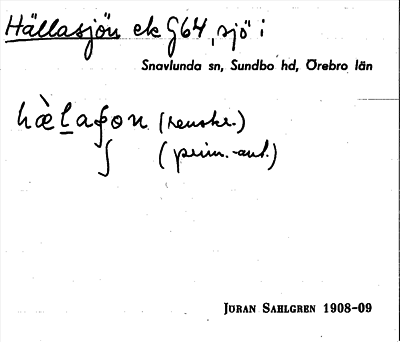 Hällasjön ek G64, sjö i
Snavlunda sn, Sundbo hd, Örebro län
hæ̀l̲aʄon (renskr.)
ʃ (prim.-ant.)
JÖRAN SAHLGREN 1908-09